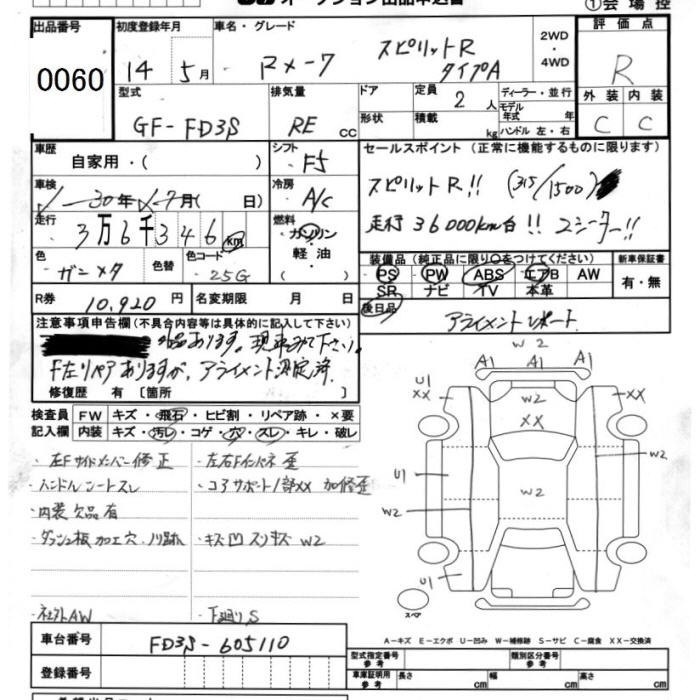 ①会場控
出品番号 初度登録年月 車名・グレード 評価点
0060 14年 5月 RX-7 スピリットR タイプA 2WD・4WD R
型式 排気量 ドア 定員 ディーラー・並行 外装 内装
GF-FD3S RE cc 2人 モデル年式 年 C C
形状 積載 kg ハンドル 左・右
車歴 シフト セールスポイント (正常に機能するものに限ります)
自家用・( ) F5
車検 冷房 スピリットR!! (315/1500)
30年 7月( 日) A/C
走行 燃料 走行36000km台!! 2シーター!!
3万6千346km ガソリン・軽油・
色 色替 色コード 装備品(純正品に限り○をつけてください) 新車保証書
ガンメタ 25G PS PW ABS エアB AW 有・無
SR ナビ TV 本革
R券 10,920円 名変期限 月 日 後日品 アライメントレポート
注意事項申告欄(不具合内容等は具体的に記入して下さい)
あります。現車みて下さい。
F左リペアありますが、アライメント測定済
修復歴 有 〔箇所 〕
検査員記入欄 FW キズ・飛石・ヒビ割・リペア跡・×要
内装 キズ・汚レ・コゲ・穴・スレ・キレ・破レ
・左Fサイドメンバー修正 ・左右Fインパネ歪
・ハンドルシートスレ ・コアサポート1部XX 加修歪
・内装欠品有
・ダッシュ板加工穴、ノリ跡 ・キズ凹スリキズW2
・社外AW ・下廻りS
W2
A1 A1 A1
U1 W2
XX XX XX
U1 W2
W2 W2
U1
スペア
A-キズ E-エクボ U-凹み W-補修跡 S-サビ C-腐食 XX-交換済
車台番号 FD3S-605110 型式指定番号 参考 類別区分番号 参考
登録番号 車庫証明用 参考 長さ cm 幅 cm 高さ cm